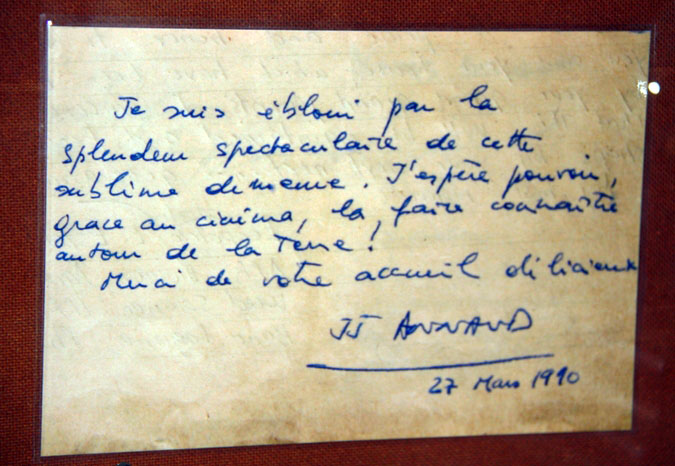 Je suis ébloui par la
splendeur spectaculaire de cette
sublime demeure. J'espère pouvoir,
grace au cinéma, la faire connaitre
autour de la Terre!
Merci de votre accueil délicieux
JJ ANNAUD
27 Mars 1990